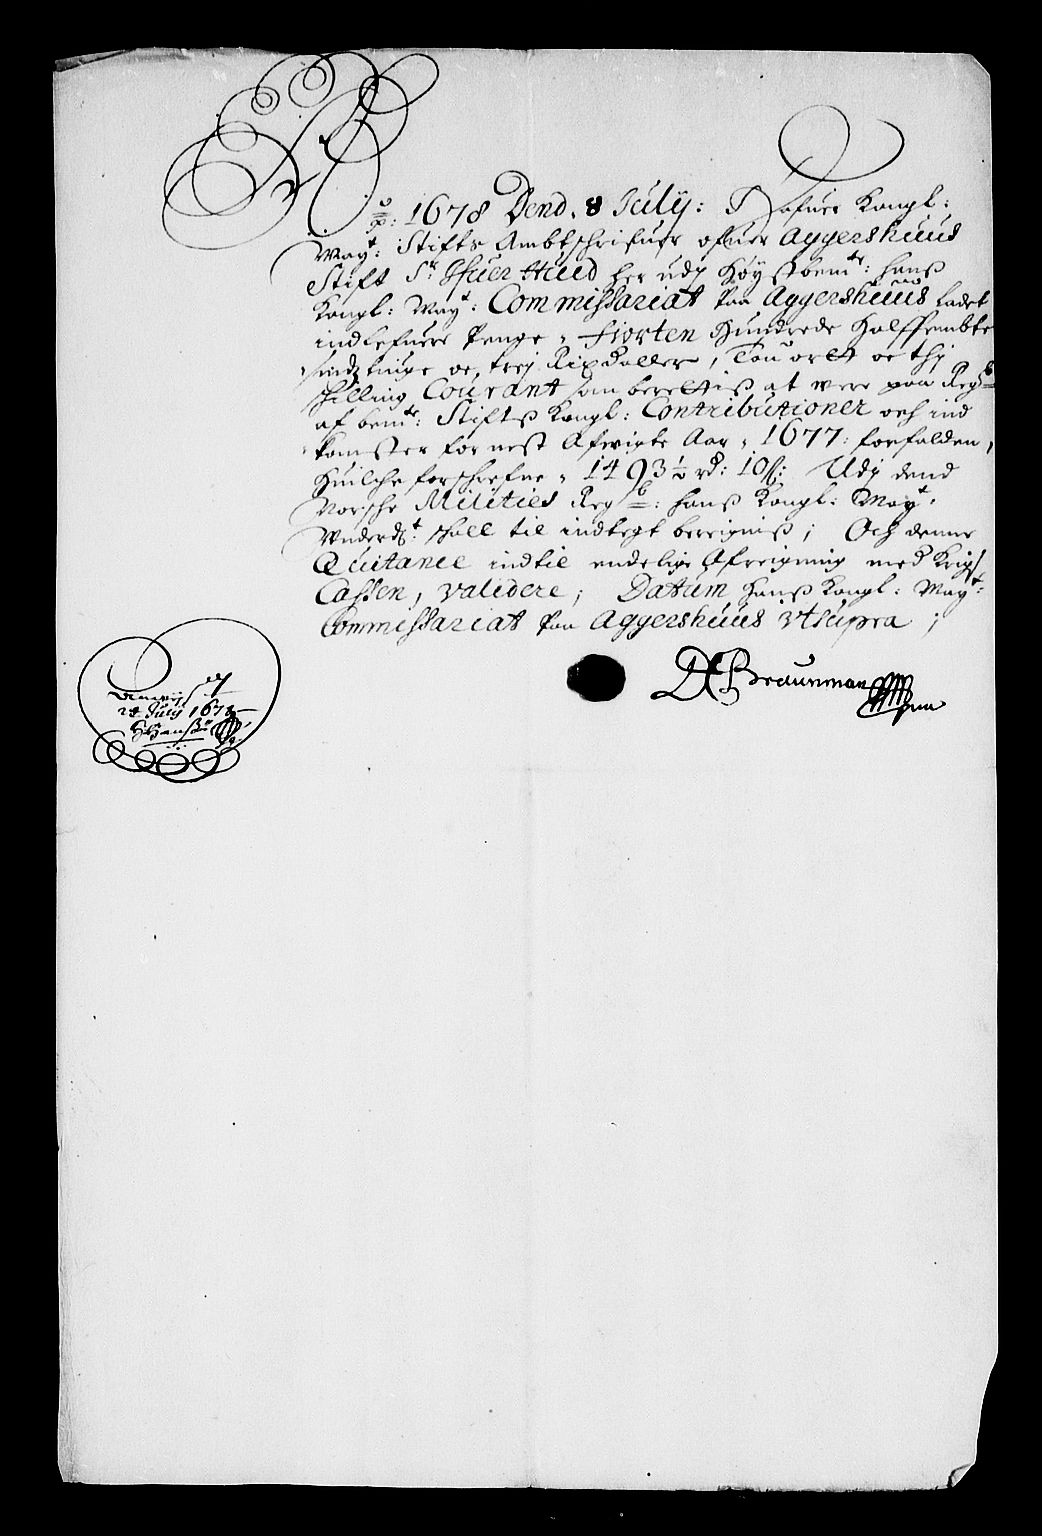 Ao: 1678 Dend. 8 July: Hafuer Kongl:
Mayt: Stifts Ambtschrifuer ofuer Aggershuus
Stift Sr Ifuer Hued her udj Høystbemte: hans
Kongl: Mayt: Commissariat paa Aggershuus ladet
indlefuere Penge, fiorten Hundrede Halffembte
sindztiuge oc trej Rixdaller, Tou ort oc thj
skilling Courant som berettiss at vere paa Regb
af bemte: Stiftß Kongl: Contributioner och ind
komster for nest Afvigte Aar, 1677: forfalden,
Huilche forschrefne, 1493½ rd: 10ß: Udj dend
Norsche Milities Regb: hanß Kongl: Mayt.
Underdt: skall til indtegt beregniß; Och denne
Quitance indtil endelige Afreigning med Krigs
Cassen, validere; Datum hanß Kongl: Mayt:
Commissariat paa Aggershuus Vtsupra;
Braunman
Anvijst
28 July 1678
HHansßn